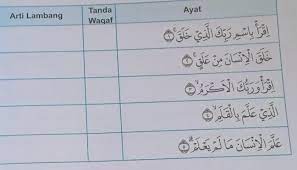 Arti Lambang Tanda Waqaf Ayat
اِقْرَأْ بِاسْمِ رَبِّكَ الَّذِيْ خَلَقَۚ ۝١
خَلَقَ الْاِنْسَانَ مِنْ عَلَقٍۚ ۝٢
اِقْرَأْ وَرَبُّكَ الْاَكْرَمُۙ ۝٣
الَّذِيْ عَلَّمَ بِالْقَلَمِۙ ۝٤
عَلَّمَ الْاِنْسَانَ مَا لَمْ يَعْلَمْۗ ۝٥